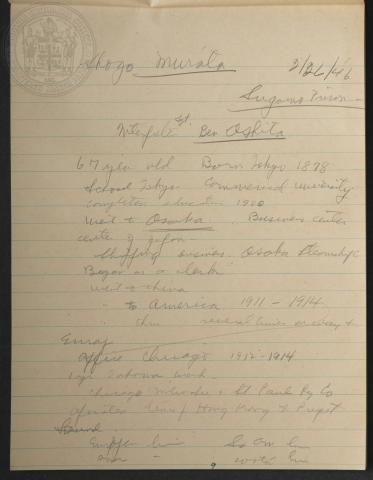 Shozo Murata 2/26/46
Sugamo Prison
Interpreter Sgt. Ben Oshita
67 year old Born Tokyo 1878
School Tokyo Commercial University
completed education 1900
Went to Osaka Business center
center of Japan
Shipping business. Osaka Steamship C
Began as a clerk
Went to China
" to America 1911 - 1914
" thru several times on way to
Europ
Office Chicago 1912-1914
Chicago Milwaukee & St Paul Ry Co
Operated line / Hong Kong & Puget
Sound.
European line So Am L